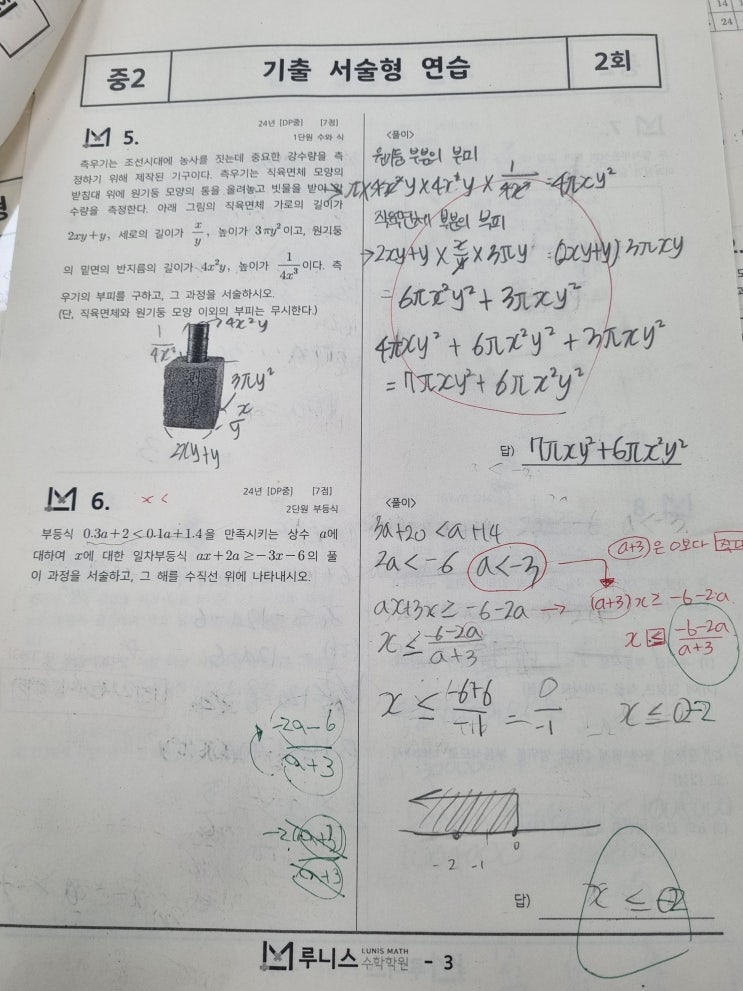 14
24
중2
기출 서술형 연습
2회
24년 [DP중] [7점]
5.
1단원 수와 식
측우기는 조선시대에 농사를 짓는데 중요한 강수량을 측
정하기 위해 제작된 기구이다. 측우기는 직육면체 모양의
받침대 위에 원기둥 모양의 통을 올려놓고 빗물을 받아
수량을 측정한다. 아래 그림의 직육면체 가로의 길이가
2xy+y, 세로의 길이가 x/y, 높이가 3πy²이고, 원기둥
의 밑면의 반지름의 길이가 4x²y, 높이가 1/4x³이다. 측
우기의 부피를 구하고, 그 과정을 서술하시오.
(단, 직육면체와 원기둥 모양 이외의 부피는 무시한다.)
4x²y
3πy²
x/y
2xy+y
<풀이>
원기둥 부분의 부피
π×4x²y×4x²y× =4πxy²
직육면체 부분의 부피
→2xy+y × x/y ×3πy =(2xy+y)3πxy
=6πx²y²+3πxy²
4πxy²+6πx²y²+3πxy²
=7πxy²+6πx²y²
답) 7πxy²+6πx²y²
6.
x<
24년 [DP중] [7점]
2단원 부등식
부등식 0.3a+2<0.1a+1.4을 만족시키는 상수 a에
대하여 x에 대한 일차부등식 ax+2a≥-3x-6의 풀
이 과정을 서술하고, 그 해를 수직선 위에 나타내시오.
-2a-6
a+3
<풀이>
3a+20<a+14
2a<-6 a<-3
(a+3)은 0보다
ax+3x≥-6-2a → (a+3)x≥-6-2a
x≤ -6-2a/a+3
x≤ -6-2a/a+3
x≤ -6+6 = 0/-1
x≤ -2
-2 -1 0
답) x≤ -2
루니스 LUNIS MATH 수학학원 - 3